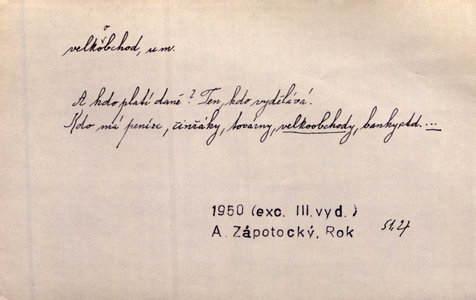 velkoobchod, u m.
A kdo platí daně? Ten, kdo vydělává.
Kdo má peníze, činžáky, továrny, velkoobchody, banky atd. ...
1950 (exc. III.vyd.)
A. Zápotocký, Rok